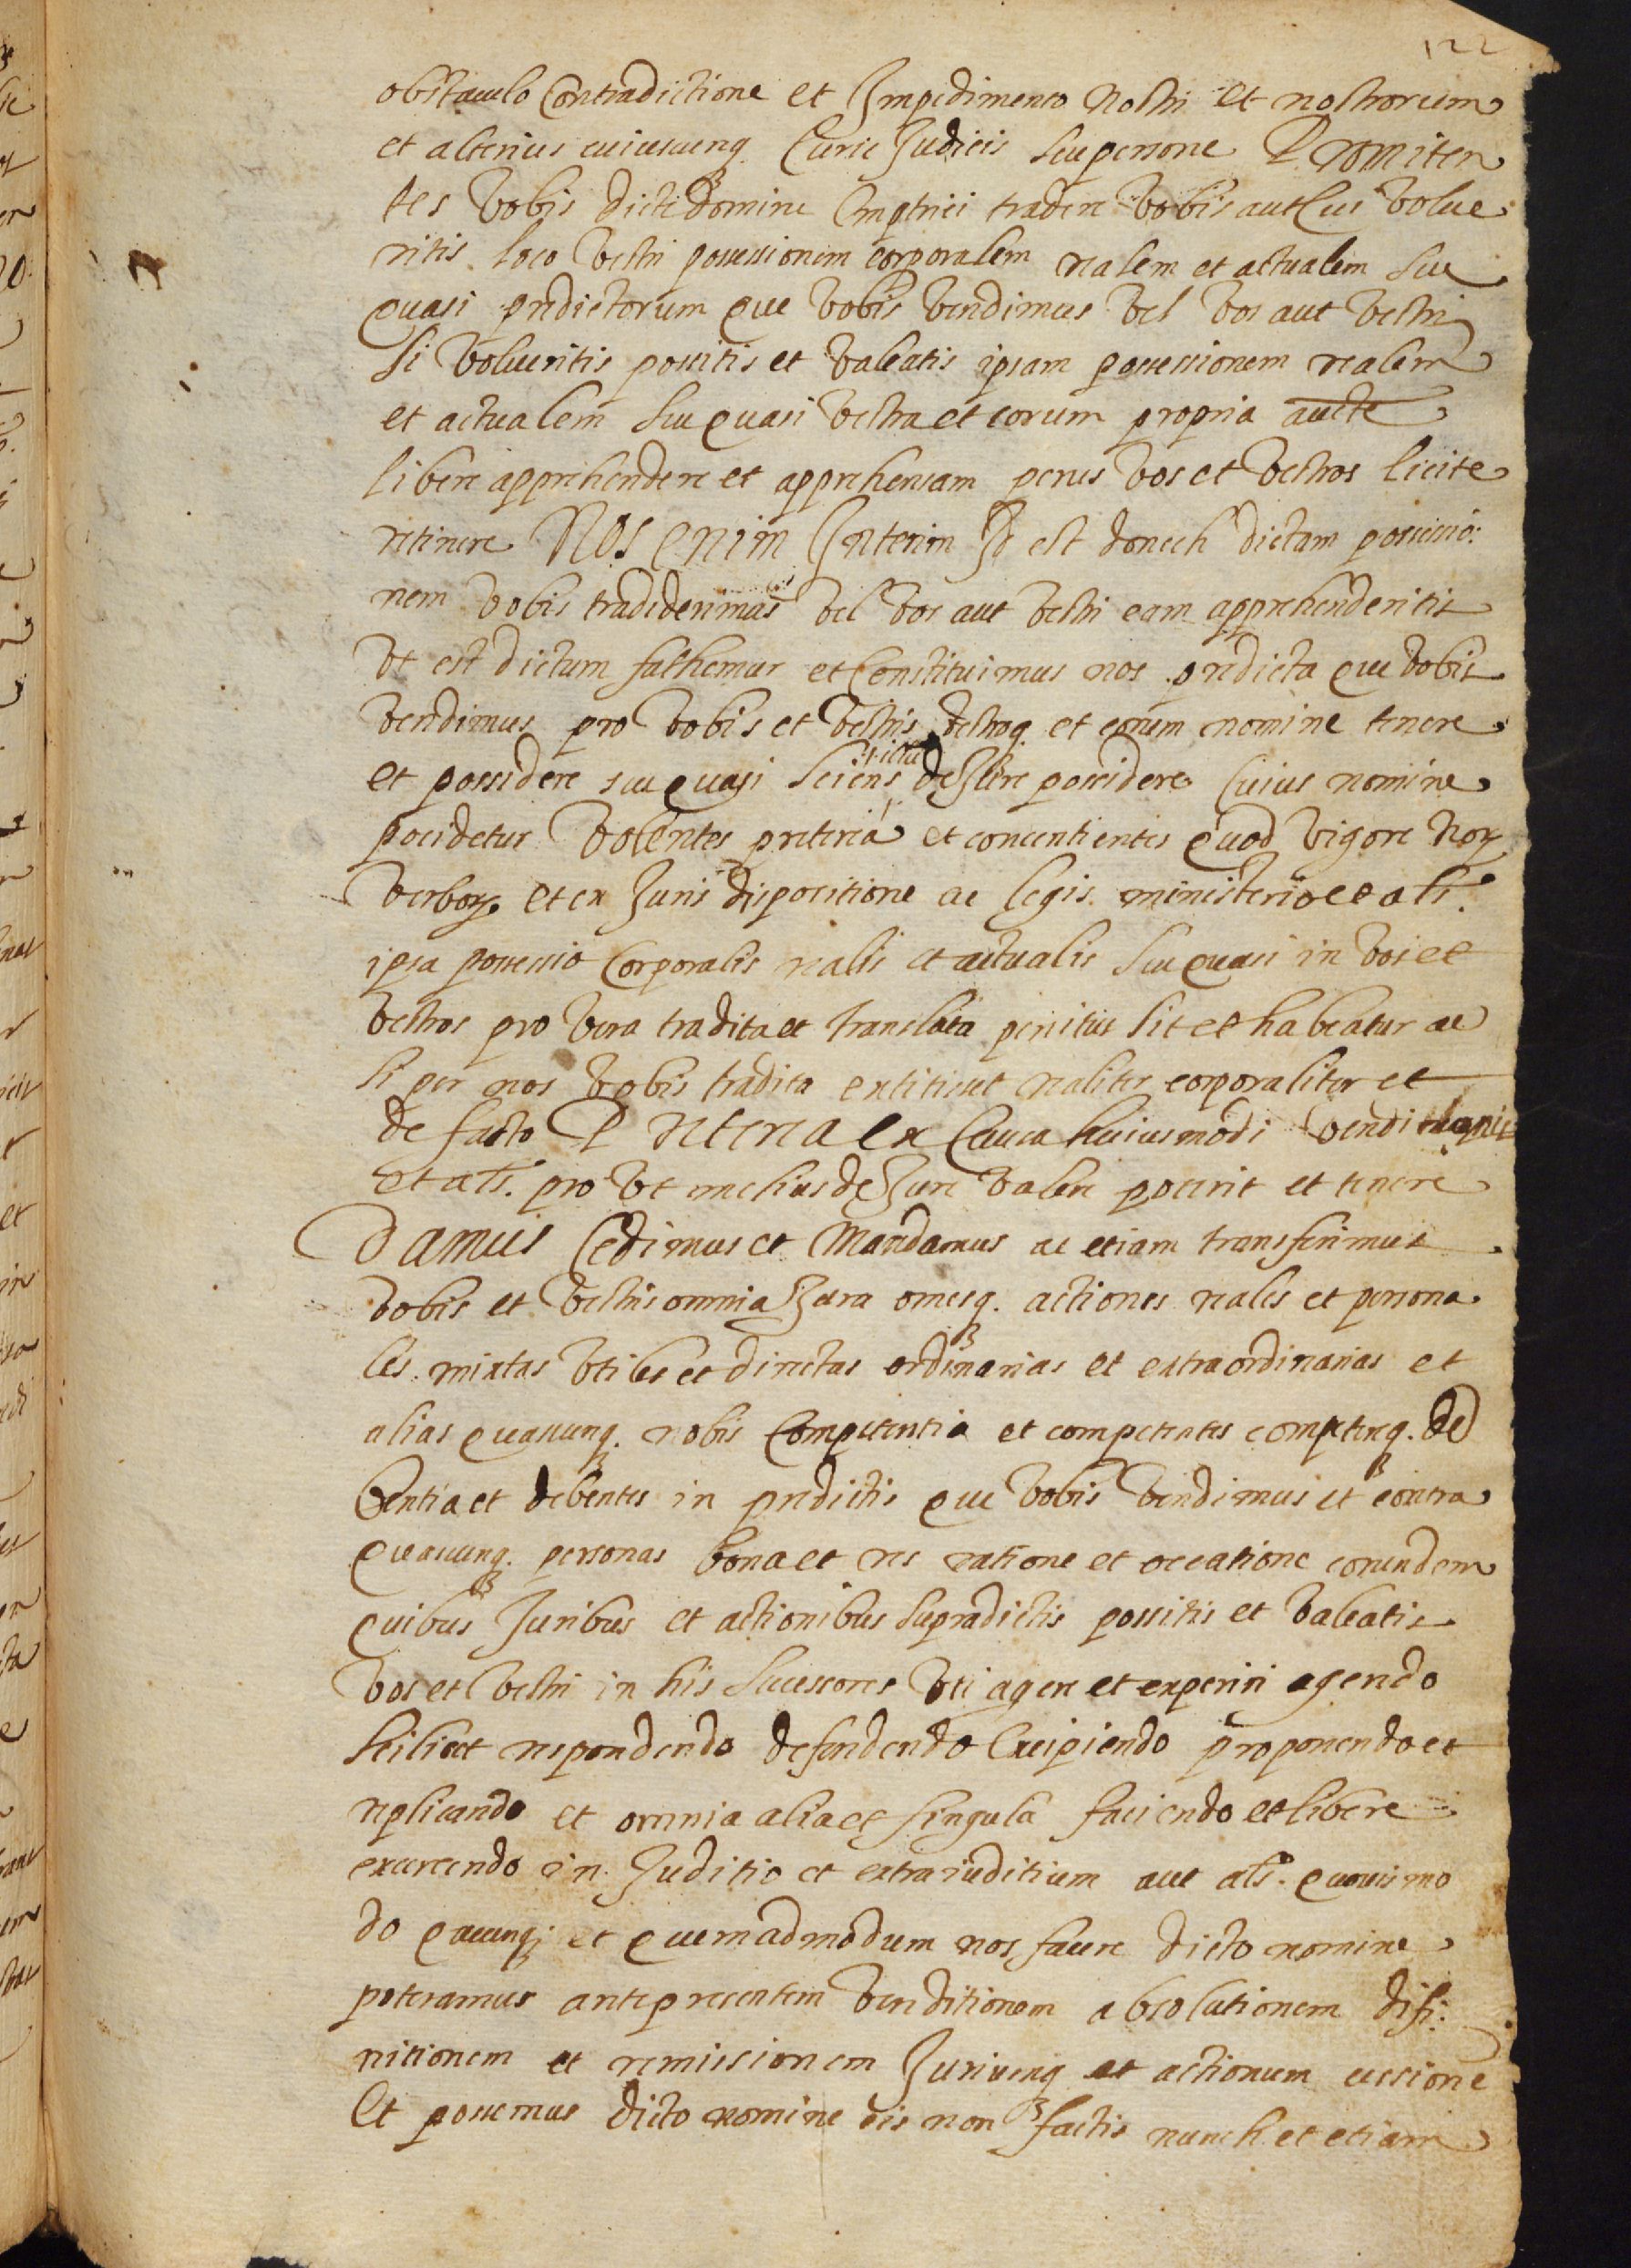 122
obstaculo Contradictione et Impedimento Nostri et nostrorum
et alterius cuiuscunq Curie Judicis seu persone Promiten
tes Vobis dicte domine Emptrici tradere Vobis aut cui Volue
ritis loco Vestri possessionem corporalem realem et actualem seu
quasi predictorum que Vobis Vendimus Vel Vos aut Vestri
si Volueritis possitis et Valeatis ipsam possessionem realem
et actualem seu quasi Vestra et eorum propria aucte
libere apprehendere et apprehensam penes Vos et Vestros licite
retinere Nos enim Interim Id est donech dictam possessio:
nem Vobis tradiderimus Vel Vos aut Vestri eam apprehenderitis
Vt est dictum fathemur et Constituimus nos predicta que Vobis
Vendimus pro Vobis et Vestris Vestroq et eorum nomine tenere
et possidere seu quasi Sciens dictu de Jure possidere Cuius nomine
pocidetur Volentes preterea et concentientes quod Vigore hor
Verbor et ex Juris dispositione ac legis ministerio et als.
ipsa possessio Corporalis realis et actualis seu quasi in Vos et
Vestros pro Vera tradita et translata penitus sit et habeatur ac
si per nos Vobis tradita extitisset realiter corporaliter et
de facto Preterea ex Causa huiusmodi Venditionis
et als. pro Vt melius de Jure Valere poterit et tenere
Damus Cedimus et Mandamus ac etiam transferimus
Vobis et Vestris omnia Jura omesq. actiones reales et persona
les mixtas Vtiles et directas ordinarias et extraordinarias et
alias quascunq. nobis Competentia et competentes competereq. de
bentia et debentes in predictis que Vobis Vendimus et contra
quascunq. personas bona et res ratione et occatione eorundem
quibus Juribus et actionibus supradictis possitis et Valeatis
Vos et Vestri in his sucessores Vti agere et experiri agendo
scilicet respondendo defendendo Excipiendo proponendo et
replicando et omnia alia et singula faciendo et libere
exercendo in Juditio et extra iuditium aut als. quovismo
do quacunq; et quemadmodum nos facere dicto nomine
poteramus ante presentem Venditionem absolutionem difi:
nitionem et remissionem Juriumq et actionum cessione
Et possemus dicto nomine eis non factis nunch et etiam